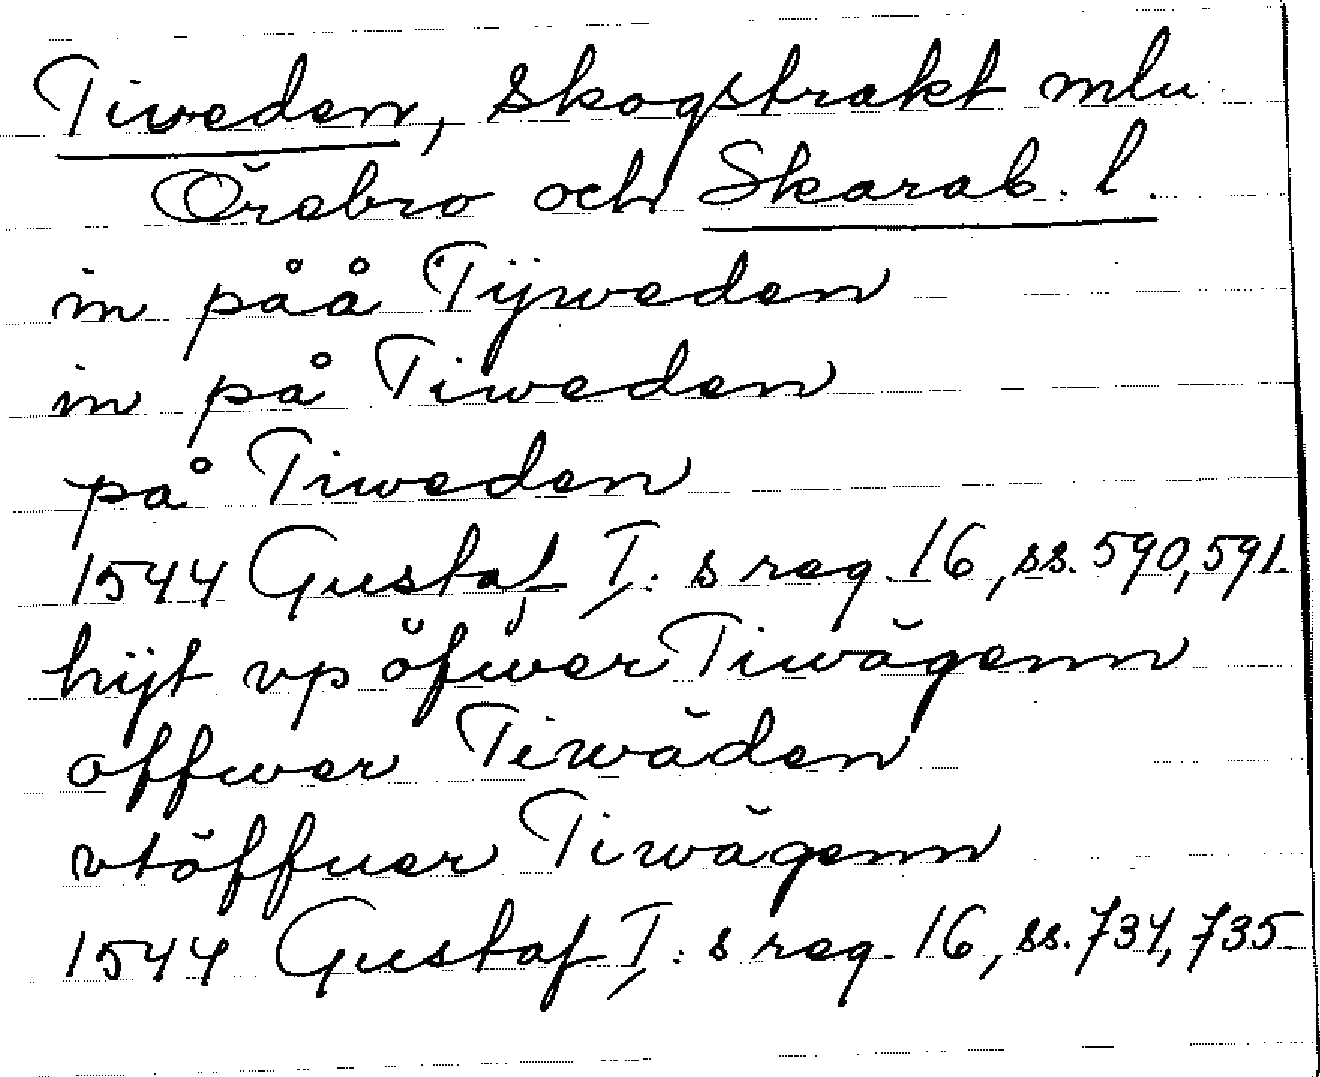 Tiveden, skogstrakt mlu
Örebro och Skarab. l.
in påå Tijweden
in på Tiweden
på Tiweden
1544 Gustaf I:s reg. 16, ss. 590, 591.
hijt vp öfwer Tiwägenn
offwer Tiwäden
vtöffuer Tiwägenn
1544 Gustaf I:s reg. 16, ss. 734, 735